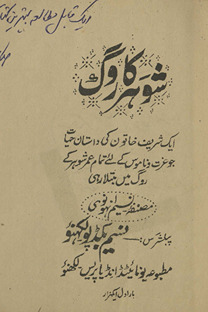 ایک قابل مطالعہ بہترین
شوہر کا روگ
ایک شریف خاتون کی داستان حیات
جو عزت و ناموس کے لئے تمام عمر شوہر کے
روگ میں مبتلا رہی
مصنفہ نسیم انہونوی
پبلشرس:
نسیم بکڈپو لکھنؤ
مطبوعہ یونائیٹڈ انڈیا پریس لکھنؤ
بار اول ایکہزار